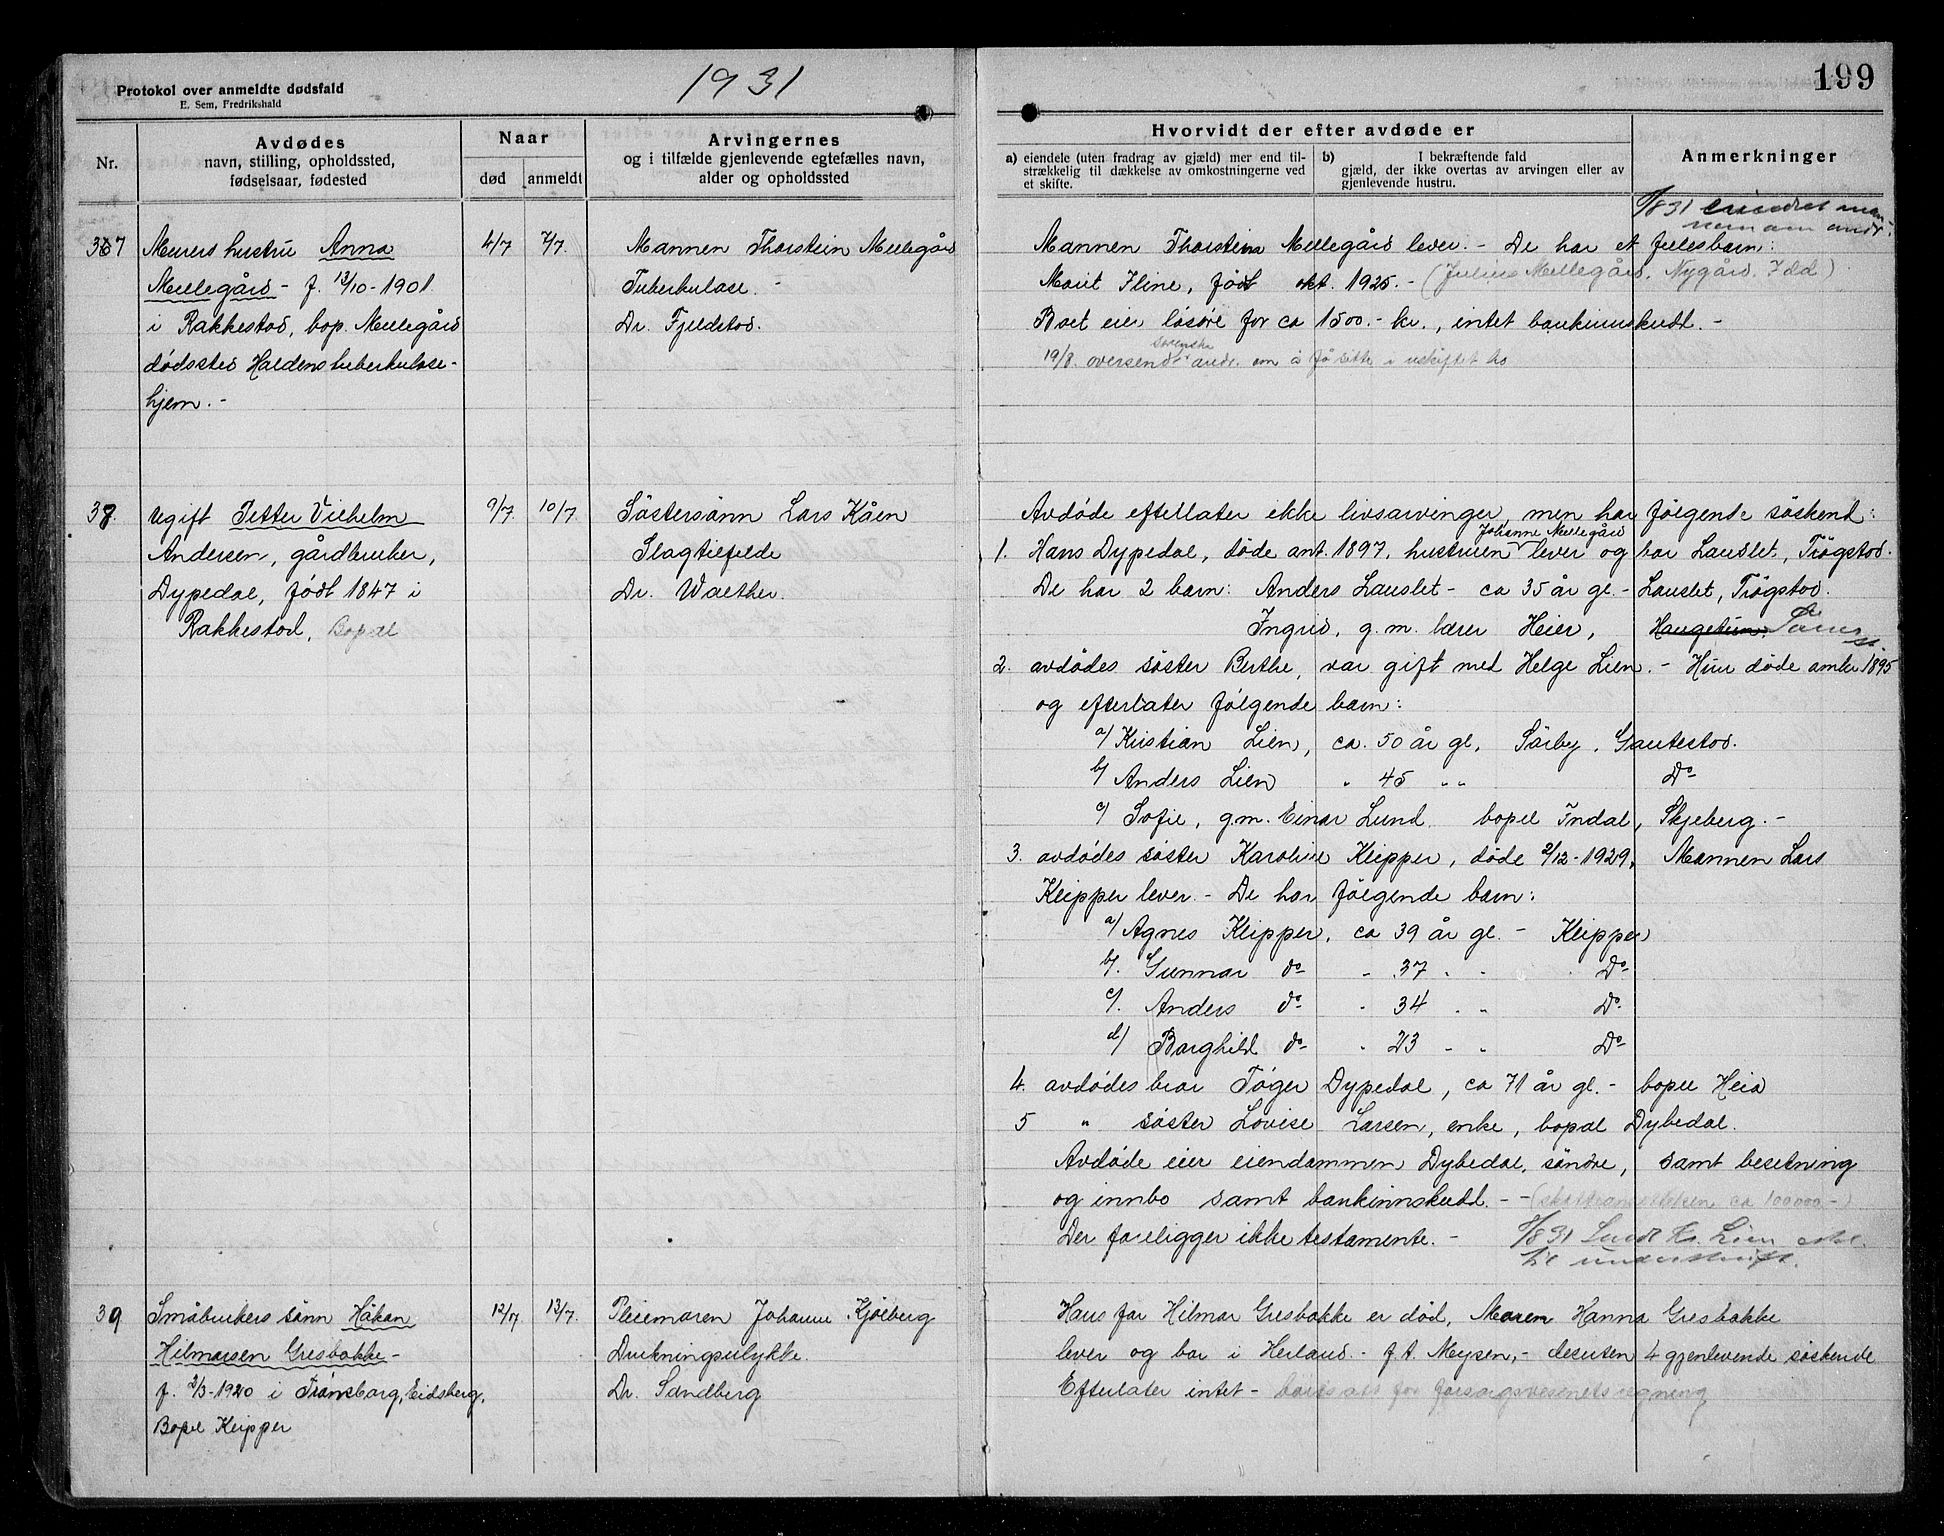 Protokol over anmeldte dødsfald
E. Sem, Fredrikshald
1931
199
Nr.
Avdødes
navn, stilling, opholdssted,
fødselsaar, fødested
Naar
død
anmeldt
Arvingernes
og i tilfælde gjenlevende egtefælles navn,
alder og opholdssted
Hvorvidt der efter avdøde er
a) eiendele (uten fradrag av gjæld) mer end til-
strækkelig til dækkelse av omkostningerne ved
et skifte.
b) I bekræftende fald
gjæld, der ikke overtas av arvingen eller av
gjenlevende hustru.
Anmerkninger
37
Murers hustru Anna
Mellegård - f. 13/10-1901
i Rakkestad, bop. Mellegård
dødssted Haldens tuberkulose-
hjem. -
4/7
7/7.
Mannen Thorstein Mellegård
Tuberkulose. -
Dr. Fjeldstad.
8/8 31
Mannen Thorstein Mellegård lever. - De har et fellesbarn:
Marit Iline, født okt. 1925. - (Julius Mellegård, Nygård, Idd)
Boet eier løsøre for ca 1500.- kr., intet bankinnskudd. -
19/8. oversendt andr. om å få sitte i uskiftet bo
38.
Ugift Petter Vilhelm
Andersen, gårdbruker,
Dypedal, født 1847 i
Rakkestad, Bopæl
9/7.
10/7.
Søstersønn Lars Kåen
Slagtilfelde
Dr. Walther.
Avdøde efterlater ikke livsarvinger, men har følgende søskend:
Johanne Mellegård
1. Hans Dypedal, døde ant. 1897, hustruen lever og bor Lauslet, Trøgstad.
De har 2 barn: Anders Lauslet - ca 35 år gl. - Lauslet, Trøgstad.
Ingrid, g.m. lærer Heier, Haugetun
2. avdødes søster Berthe, var gift med Helge Lien. - Hun døde omkr 1895
og efterlater følgende barn:
a/ Kristian Lien, ca. 50 år gl. Sørby, Gautestad.
b/ Anders Lien " 45 " " Do
c/ Sofie, g.m. Einar Lund bopel Indal, Skjeberg. -
3. avdødes søster Karoline Klipper, døde 2/12-1929. Mannen Lars
Klipper lever. - De har følgende barn:
a/ Agnes Klipper, ca 39 år gl. - Klipper
b/. Gunnar do " 37 " " Do
c/. Anders do " 34 " " Do
d/ Borghild do " 23 " " Do
4. avdødes bror Tøger Dypedal, ca 71 år gl. - bopel Heia
5 " søster Lovise Larsen, enke, bopæl Dybedal.
Avdøde eier eiendommen Dybedal, søndre, samt besetning
og innbo samt bankinnskudd. - - (skatteansettelsen ca 100000 -)
Der foreligger ikke testamente. - 8/8 31 Sendt Kr. Lien
til underskrift.
39
Småbrukers sønn Håkan
Hilmarsen Gresbakke -
f. 2/3-1920 i Trømborg, Eidsberg,
Bopel Klipper
12/7
13/7.
Pleiemoren Johanne Kjølberg
Drukningsulykke.
Dr. Sandberg
Hans far Hilmar Gresbakke er død, Moren Hanna Gresbakke
lever og bor i Herland. - f.t. Mysen, - desuten 4 gjenlevende søskende
Efterlater intet - bortsatt for forsorgsvesenets regning